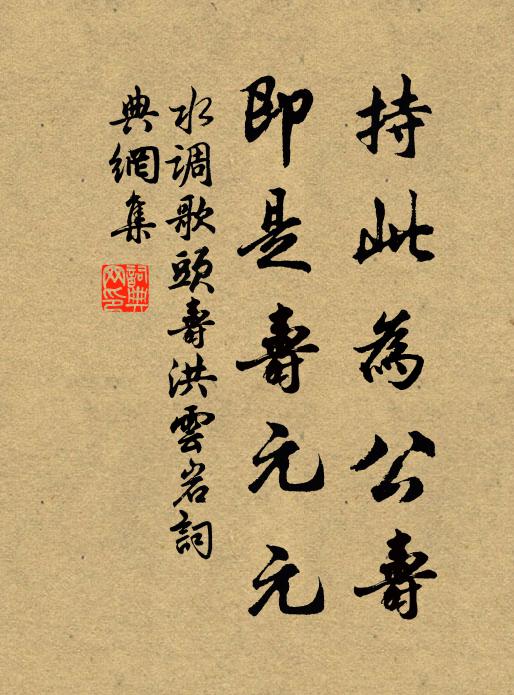 持此為公壽
即是壽元元
水調歌頭壽洪雲岩詞
典網集
詞典網印